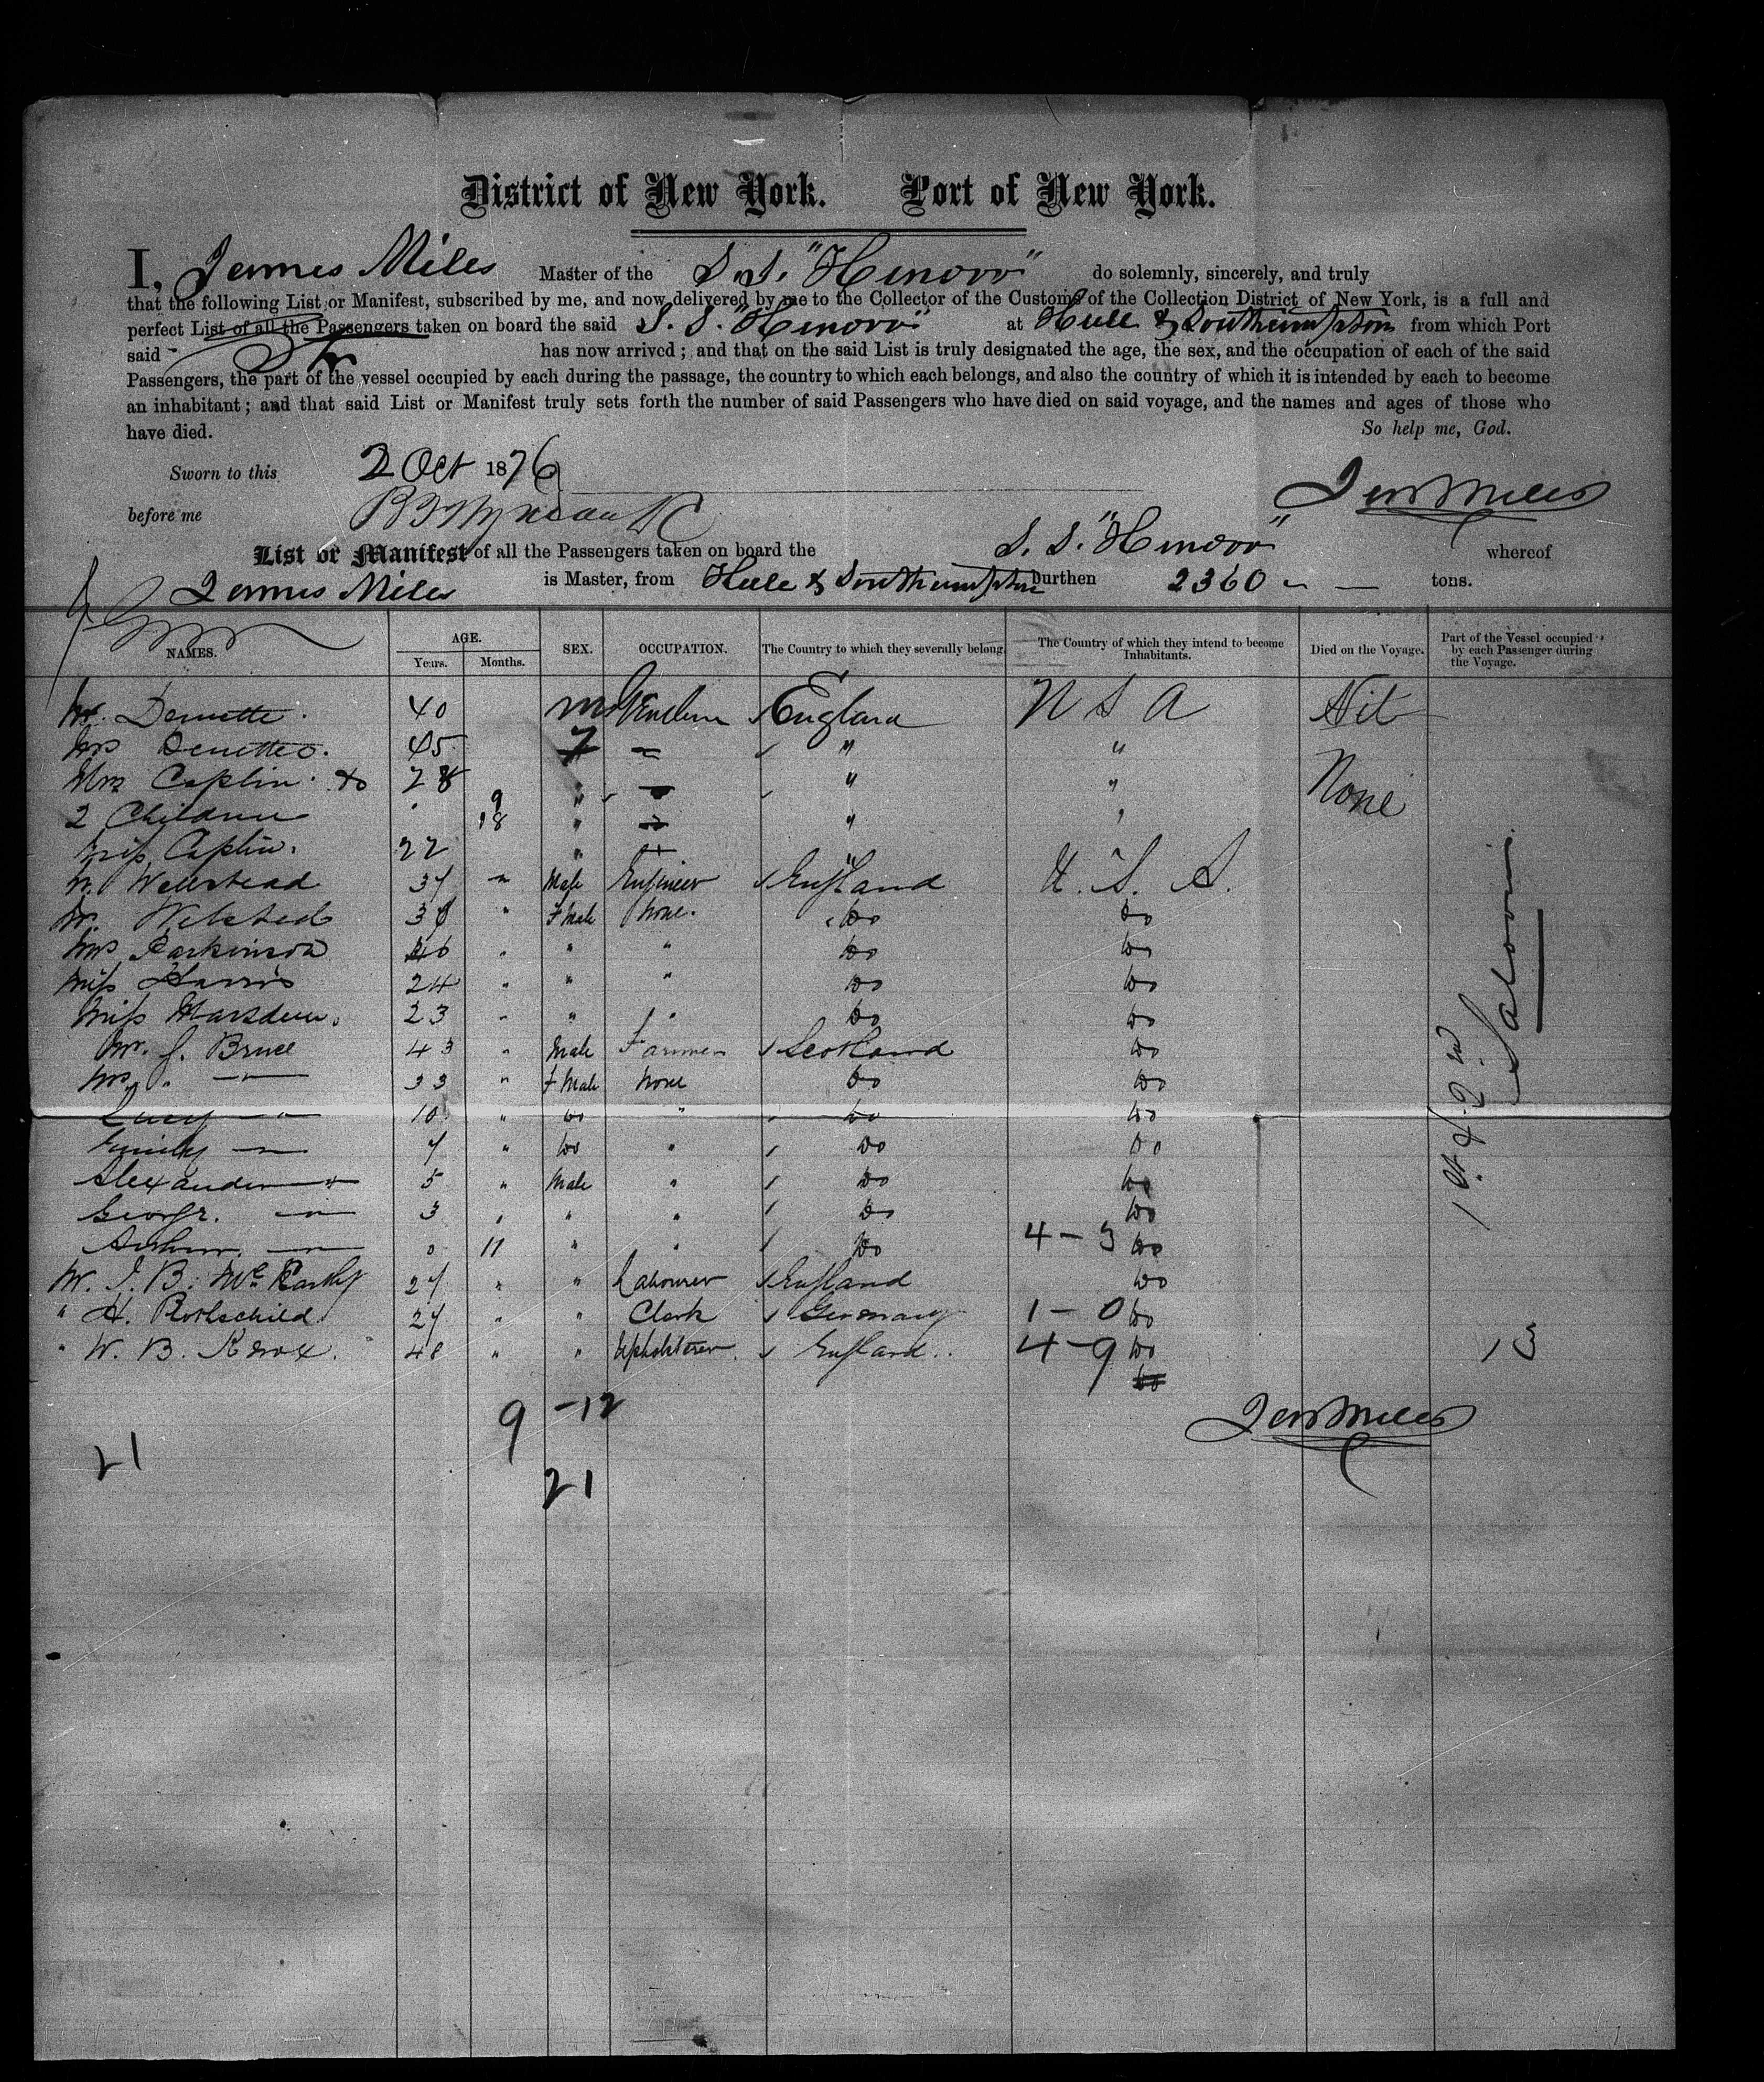 District of New York. Port of New York.
I, James Miles Master of the S.S. "Hindoo" do solemnly, sincerely, and truly
that the following List or Manifest, subscribed by me, and now delivered by me to the Collector of the Customs of the Collection District of New York, is a full and
perfect List of all the Passengers taken on board the said S. S. "Hindoo" at Hull & Southampton from which Port
said Str has now arrived; and that on the said List is truly designated the age, the sex, and the occupation of each of the said
Passengers, the part of the vessel occupied by each during the passage, the country to which each belongs, and also the country of which it is intended by each to become
an inhabitant; and that said List or Manifest truly sets forth the number of said Passengers who have died on said voyage, and the names and ages of those who
have died. So help me, God.
Sworn to this 2 Oct 1876
before me Jas Miles
List or Manifest of all the Passengers taken on board the S. S. "Hindoo" whereof
James Miles is Master, from Hull & Southampton burthen 2360 tons.
NAMES. AGE. Years. Months. SEX. OCCUPATION. The Country to which they severally belong. The Country of which they intend to become Inhabitants. Died on the Voyage. Part of the Vessel occupied by each Passenger during the Voyage.
Mr. 40 M England U S A Nil
Mrs 45 F " "
Mrs Caplin & 28 " " " None
2 Children 9 18 " " "
Miss Caplin. 22 " "
W. Wellstead 37 " Male Engineer England U. S. A.
M. Welsted 38 " F Male None. Do Do
Mrs Parkinson 46 " " " Do Do
Miss Harris 24 " " " Do Do
Miss Marsden. 23 " " " Do Do
Mr. J. Bruce 43 " Male Farmer Scotland Do
Mrs. " 33 " F Male None Do Do
Lucy " 10 " Do " Do Do
Emily " 7 " Do " Do Do
Alexander " 5 " Male " Do Do
George. " 3 " " " Do Do
Arthur. " 0 11 " " Do 4-3 Do
Mr. J. B. McCarthy 27 " " Labourer England Do
" H. Rothschild 27 " " Clerk Germany 1-0 Do
" W. B. Knox. 48 " " Upholsterer. England. 4-9 Do
Do
1st & 2nd Saloon
13
9-12
Jas Miles
21
21